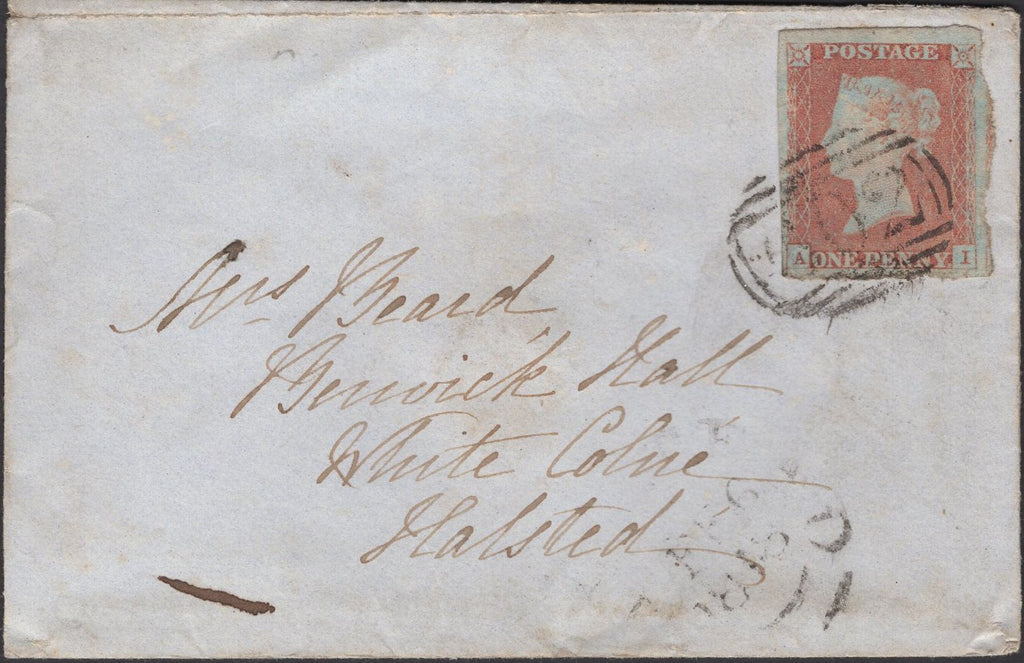 POSTAGE
A ONE PENNY I
Mrs Beard
Berwick Hall
White Colne
Halsted